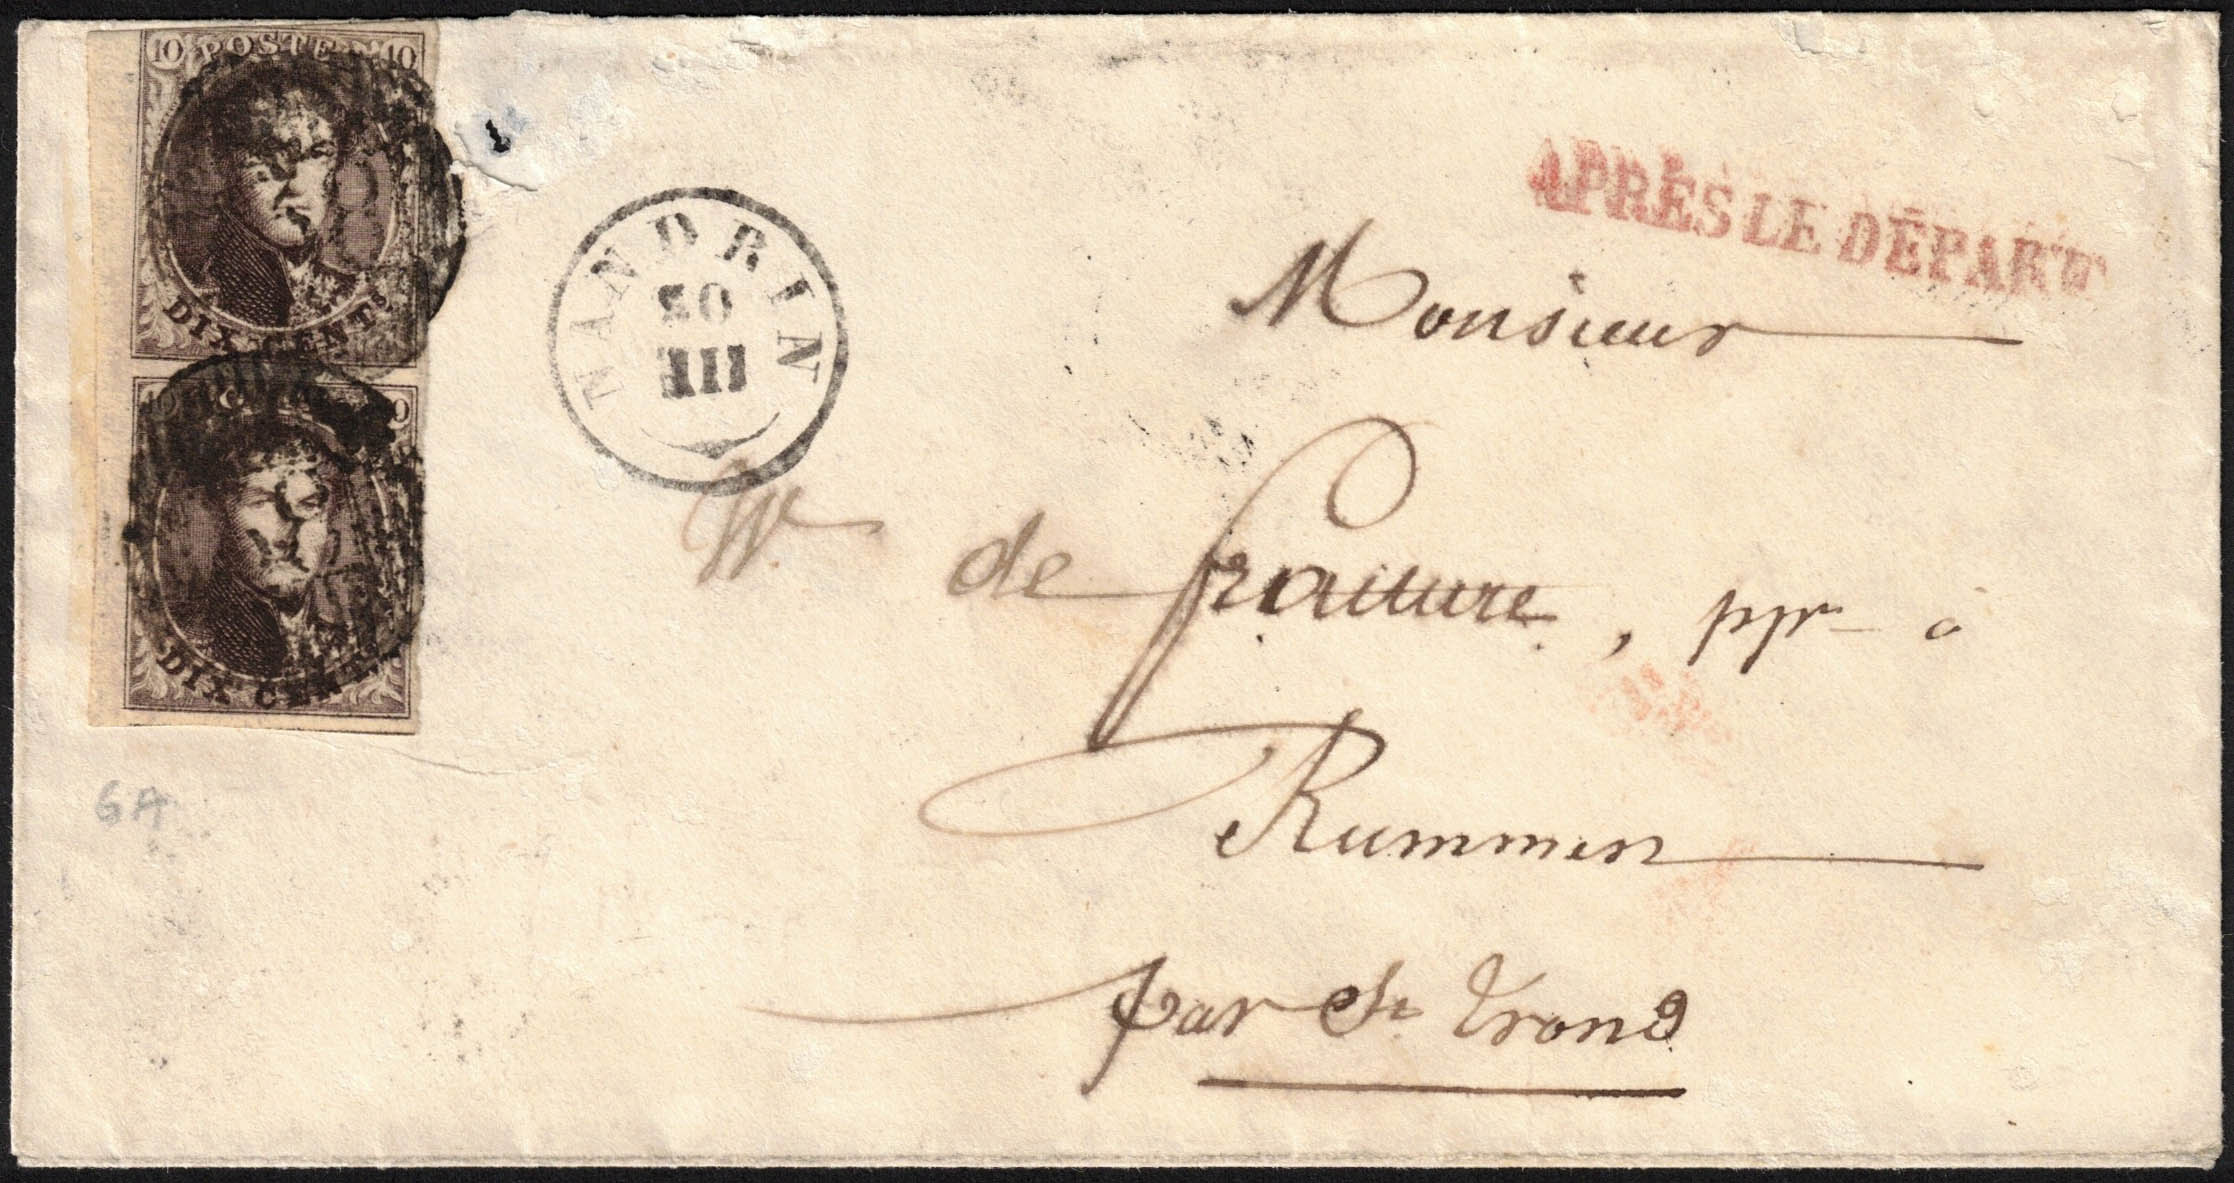 10 POSTES 10
DIX CENTS
DIX CENTS
NANDRIN
20
III
APRÈS LE DÉPART
Monsieur
W. de Fraiture, ppre à
Rummen
par St Trond
6A